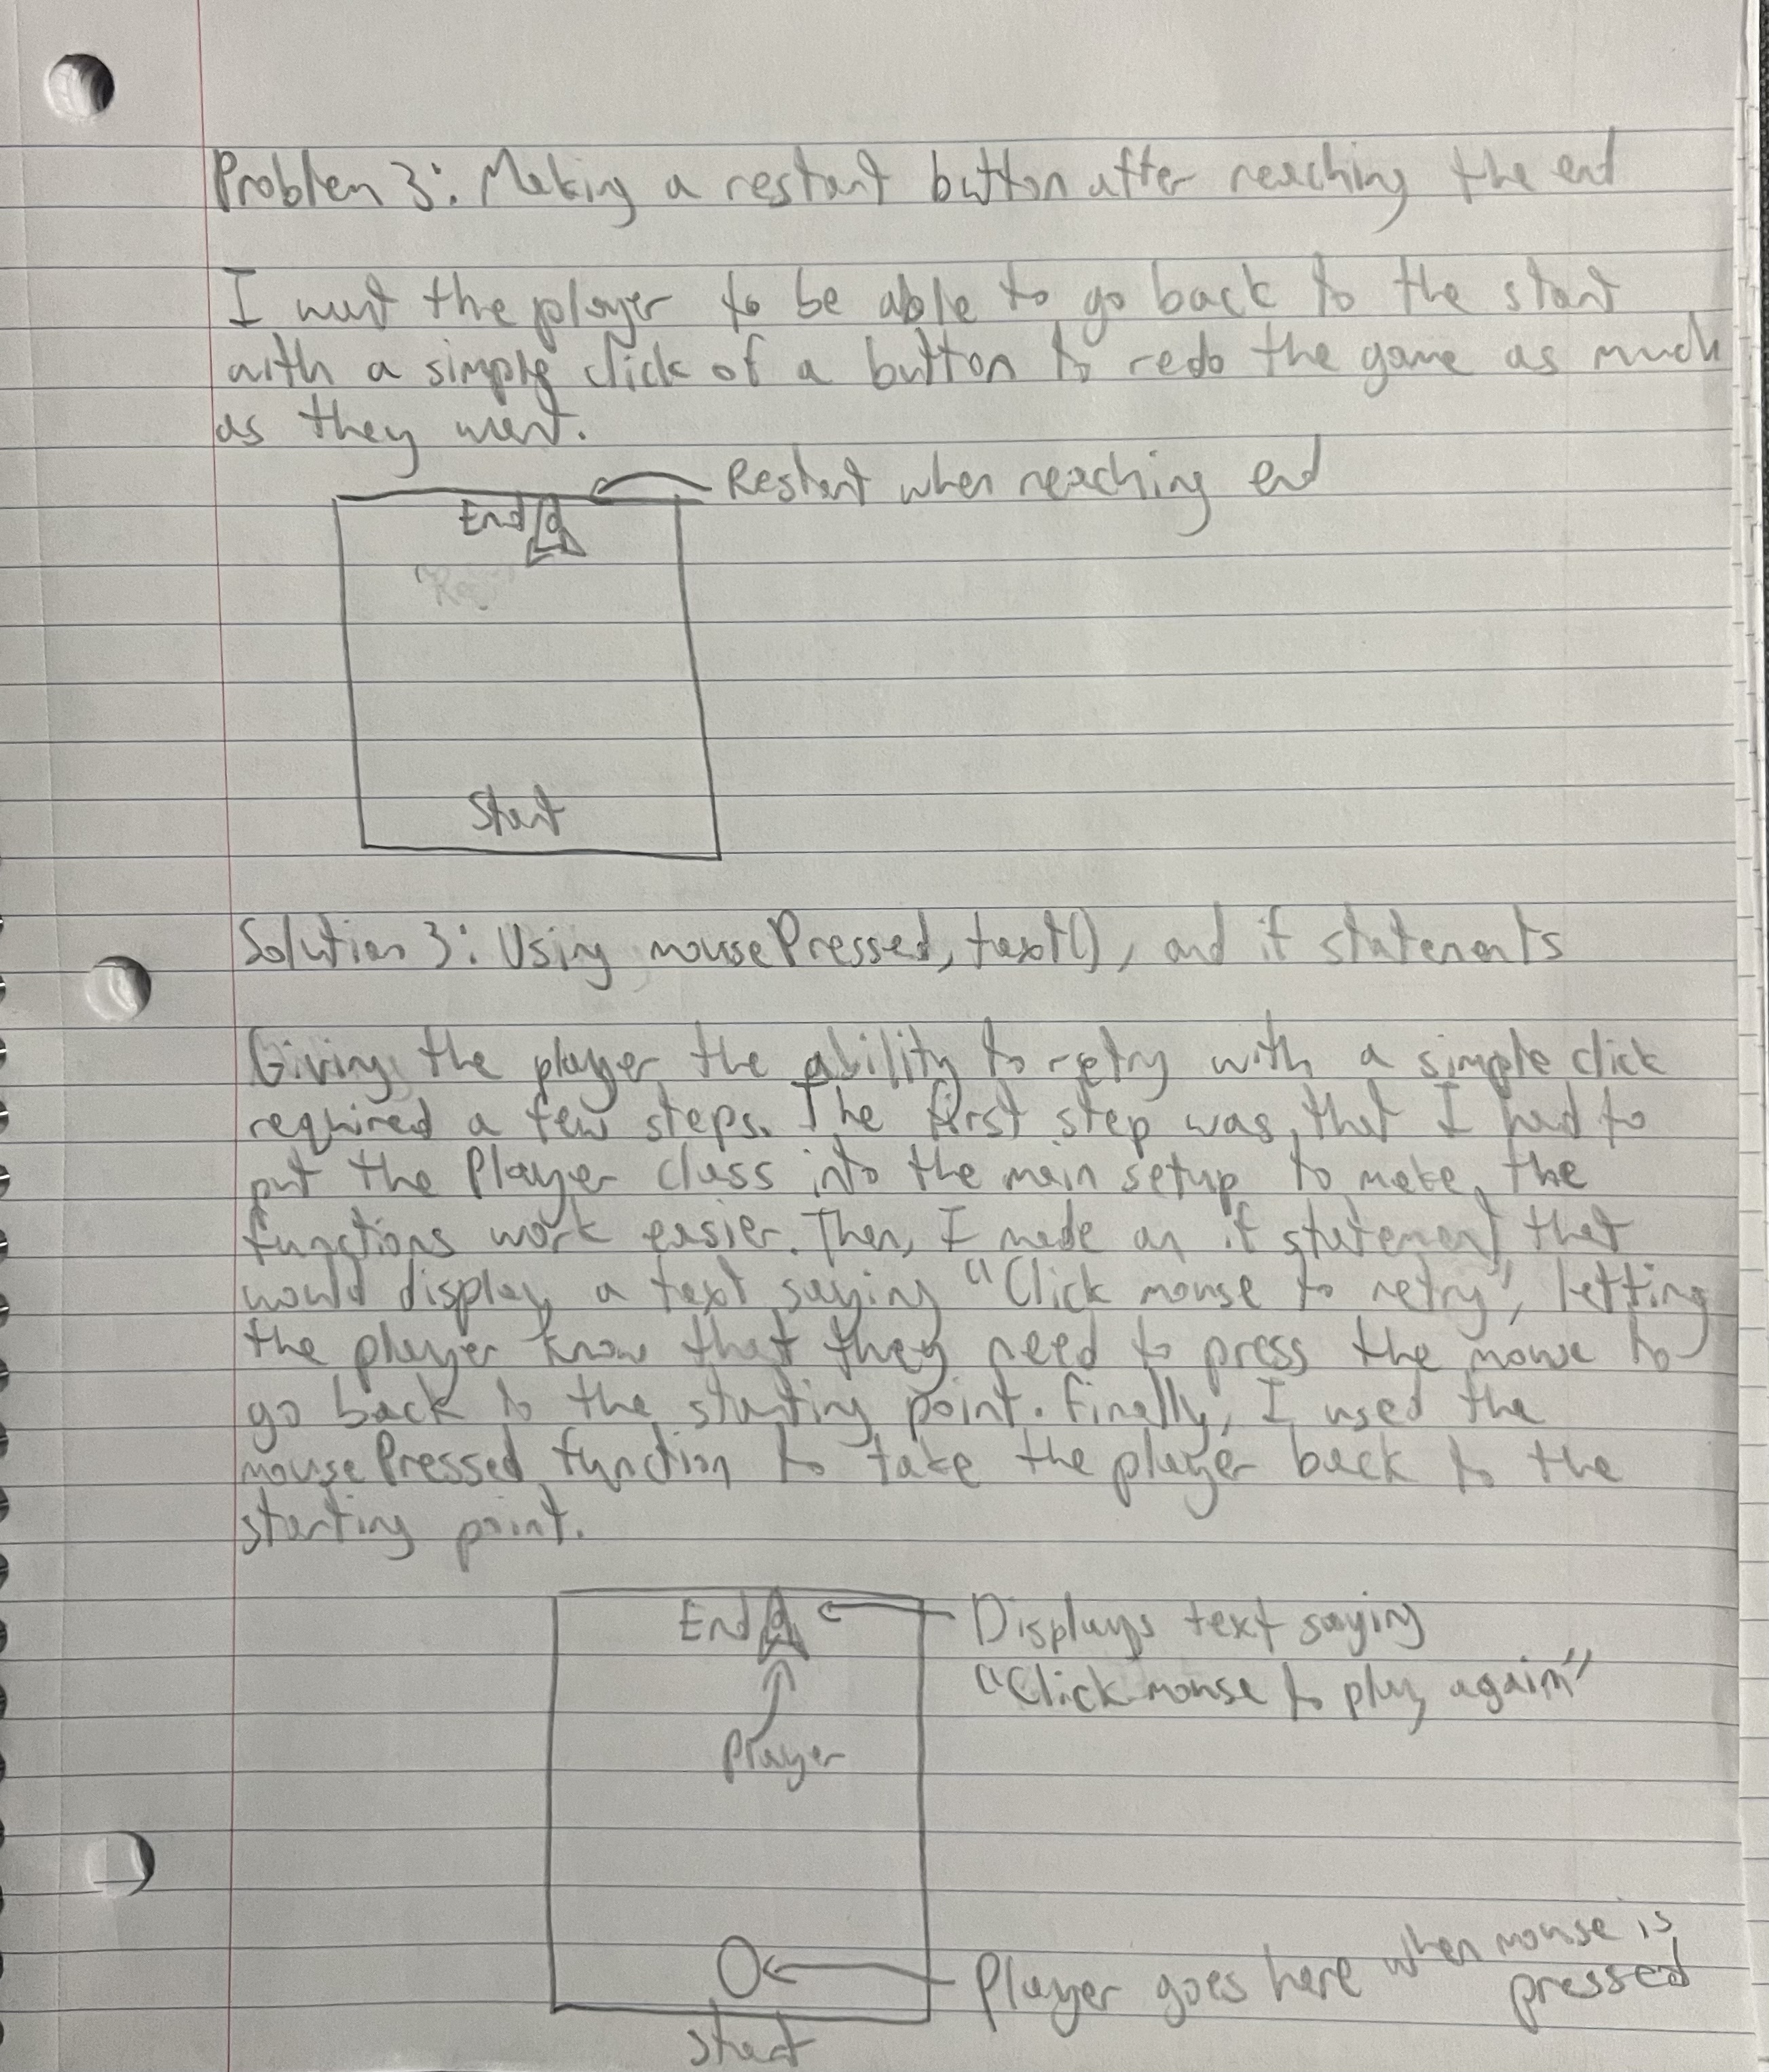 Problem 3: Making a restart button after reaching the end
I want the player to be able to go back to the start
with a simple click of a button to redo the game as much
as they want.
Restart when reaching end
End
Start
Solution 3: Using mousePressed, text(), and if statements
Giving the player the ability to retry with a simple click
required a few steps. The first step was that I had to
put the Player class into the main setup to make the
functions work easier. Then, I made an if statement that
would display a text saying "Click mouse to retry", letting
the player know that they need to press the mouse to
go back to the starting point. Finally, I used the
mousePressed function to take the player back to the
starting point.
End
Displays text saying
"Click mouse to play again"
Player
Player goes here when mouse is
pressed
Start